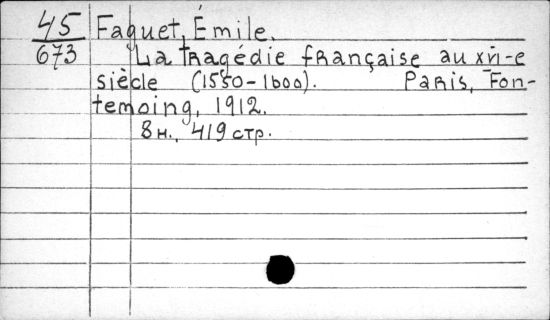 45 Faguet, Émile.
673 La tragédie française au XVI-e
siècle (1550-1600). Paris, Fon-
temoing, 1912.
8н., 419 стр.